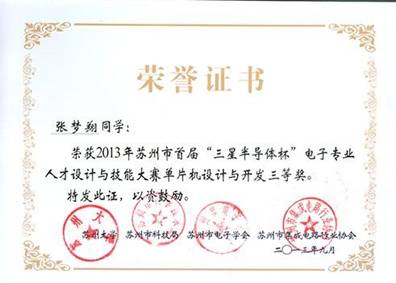 荣誉证书
张梦翔同学：
荣获2013年苏州市首届“三星半导体杯”电子专业
人才设计与技能大赛单片机设计与开发三等奖。
特发此证，以资鼓励。
苏州大学 苏州市科技局 苏州市电子学会 苏州市集成电路行业协会
二〇一三年九月